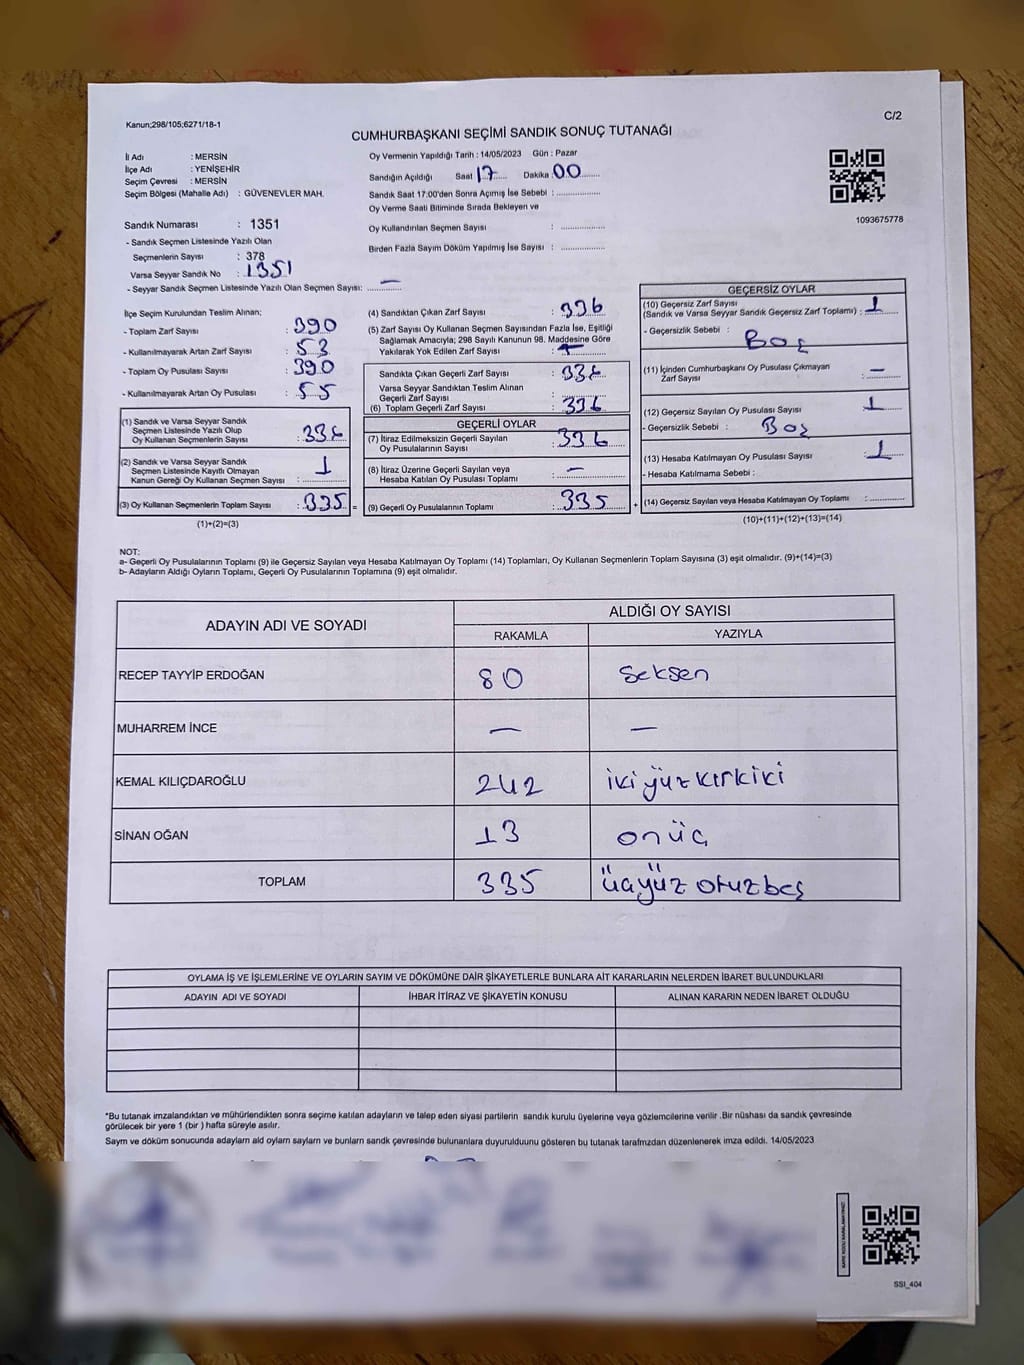 Kanun;298/105;6271/18-1
C/2
CUMHURBAŞKANI SEÇİMİ SANDIK SONUÇ TUTANAĞI
İl Adı : MERSİN
İlçe Adı : YENİŞEHİR
Seçim Çevresi : MERSİN
Seçim Bölgesi (Mahalle Adı) : GÜVENEVLER MAH.
Sandık Numarası : 1351
- Sandık Seçmen Listesinde Yazılı Olan
Seçmenlerin Sayısı : 378
Varsa Seyyar Sandık No : 1351
- Seyyar Sandık Seçmen Listesinde Yazılı Olan Seçmen Sayısı: —
Oy Vermenin Yapıldığı Tarih : 14/05/2023 Gün : Pazar
Sandığın Açıldığı Saat 17 Dakika 00
Sandık Saat 17:00'den Sonra Açımış İse Sebebi :
Oy Verme Saati Bitiminde Sırada Bekleyen ve
Oy Kullandırılan Seçmen Sayısı :
Birden Fazla Sayım Döküm Yapılmış İse Sayısı :
1093675778
İlçe Seçim Kurulundan Teslim Alınan;
- Toplam Zarf Sayısı : 390
- Kullanılmayarak Artan Zarf Sayısı : 53
- Toplam Oy Pusulası Sayısı : 390
- Kullanılmayarak Artan Oy Pusulası : 55
(1) Sandık ve Varsa Seyyar Sandık
Seçmen Listesinde Yazılı Olup
Oy Kullanan Seçmenlerin Sayısı : 336
(2) Sandık ve Varsa Seyyar Sandık
Seçmen Listesinde Kayıtlı Olmayan
Kanun Gereği Oy Kullanan Seçmen Sayısı : 1
(3) Oy Kullanan Seçmenlerin Toplam Sayısı : 335 =
(1)+(2)=(3)
(4) Sandıktan Çıkan Zarf Sayısı : 336
(5) Zarf Sayısı Oy Kullanan Seçmen Sayısından Fazla İse, Eşitliği
Sağlamak Amacıyla; 298 Sayılı Kanunun 98. Maddesine Göre
Yakılarak Yok Edilen Zarf Sayısı :
Sandıkta Çıkan Geçerli Zarf Sayısı : 336
Varsa Seyyar Sandıktan Teslim Alınan
Geçerli Zarf Sayısı :
(6) Toplam Geçerli Zarf Sayısı : 336
GEÇERLİ OYLAR
(7) İtiraz Edilmeksizin Geçerli Sayılan
Oy Pusulalarının Sayısı : 336
(8) İtiraz Üzerine Geçerli Sayılan veya
Hesaba Katılan Oy Pusulası Toplamı : —
(9) Geçerli Oy Pusulalarının Toplamı : 335 +
GEÇERSİZ OYLAR
(10) Geçersiz Zarf Sayısı
(Sandık ve Varsa Seyyar Sandık Geçersiz Zarf Toplamı) : 1
- Geçersizlik Sebebi :
Boş
(11) İçinden Cumhurbaşkanı Oy Pusulası Çıkmayan
Zarf Sayısı : —
(12) Geçersiz Sayılan Oy Pusulası Sayısı : 1
- Geçersizlik Sebebi : Boş
(13) Hesaba Katılmayan Oy Pusulası Sayısı : 1
- Hesaba Katılmama Sebebi :
(14) Geçersiz Sayılan veya Hesaba Katılmayan Oy Toplamı :
(10)+(11)+(12)+(13)=(14)
NOT:
a- Geçerli Oy Pusulalarının Toplamı (9) ile Geçersiz Sayılan veya Hesaba Katılmayan Oy Toplamı (14) Toplamları, Oy Kullanan Seçmenlerin Toplam Sayısına (3) eşit olmalıdır. (9)+(14)=(3)
b- Adayların Aldığı Oyların Toplamı, Geçerli Oy Pusulalarının Toplamına (9) eşit olmalıdır.
ADAYIN ADI VE SOYADI
ALDIĞI OY SAYISI
RAKAMLA YAZIYLA
RECEP TAYYİP ERDOĞAN 80 seksen
MUHARREM İNCE — —
KEMAL KILIÇDAROĞLU 242 iki yüz kırk iki
SİNAN OĞAN 13 onüç
TOPLAM 335 üçyüz otuzbeş
OYLAMA İŞ VE İŞLEMLERİNE VE OYLARIN SAYIM VE DÖKÜMÜNE DAİR ŞİKAYETLERLE BUNLARA AİT KARARLARIN NELERDEN İBARET BULUNDUKLARI
ADAYIN ADI VE SOYADI İHBAR İTİRAZ VE ŞİKAYETİN KONUSU ALINAN KARARIN NEDEN İBARET OLDUĞU
*Bu tutanak imzalandıktan ve mühürlendikten sonra seçime katılan adayların ve talep eden siyasi partilerin sandık kurulu üyelerine veya gözlemcilerine verilir .Bir nüshası da sandık çevresinde
görülecek bir yere 1 (bir ) hafta süreyle asılır.
Sayım ve döküm sonucunda adayların ald oyların sayları ve bunların sandk çevresinde bulunanlara duyurulduunu gösteren bu tutanak tarafmzdan düzenlenerek imza edildi. 14/05/2023
SSI_404